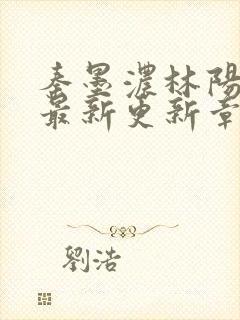 秦墨濃林陽
最新更新章
劉浩